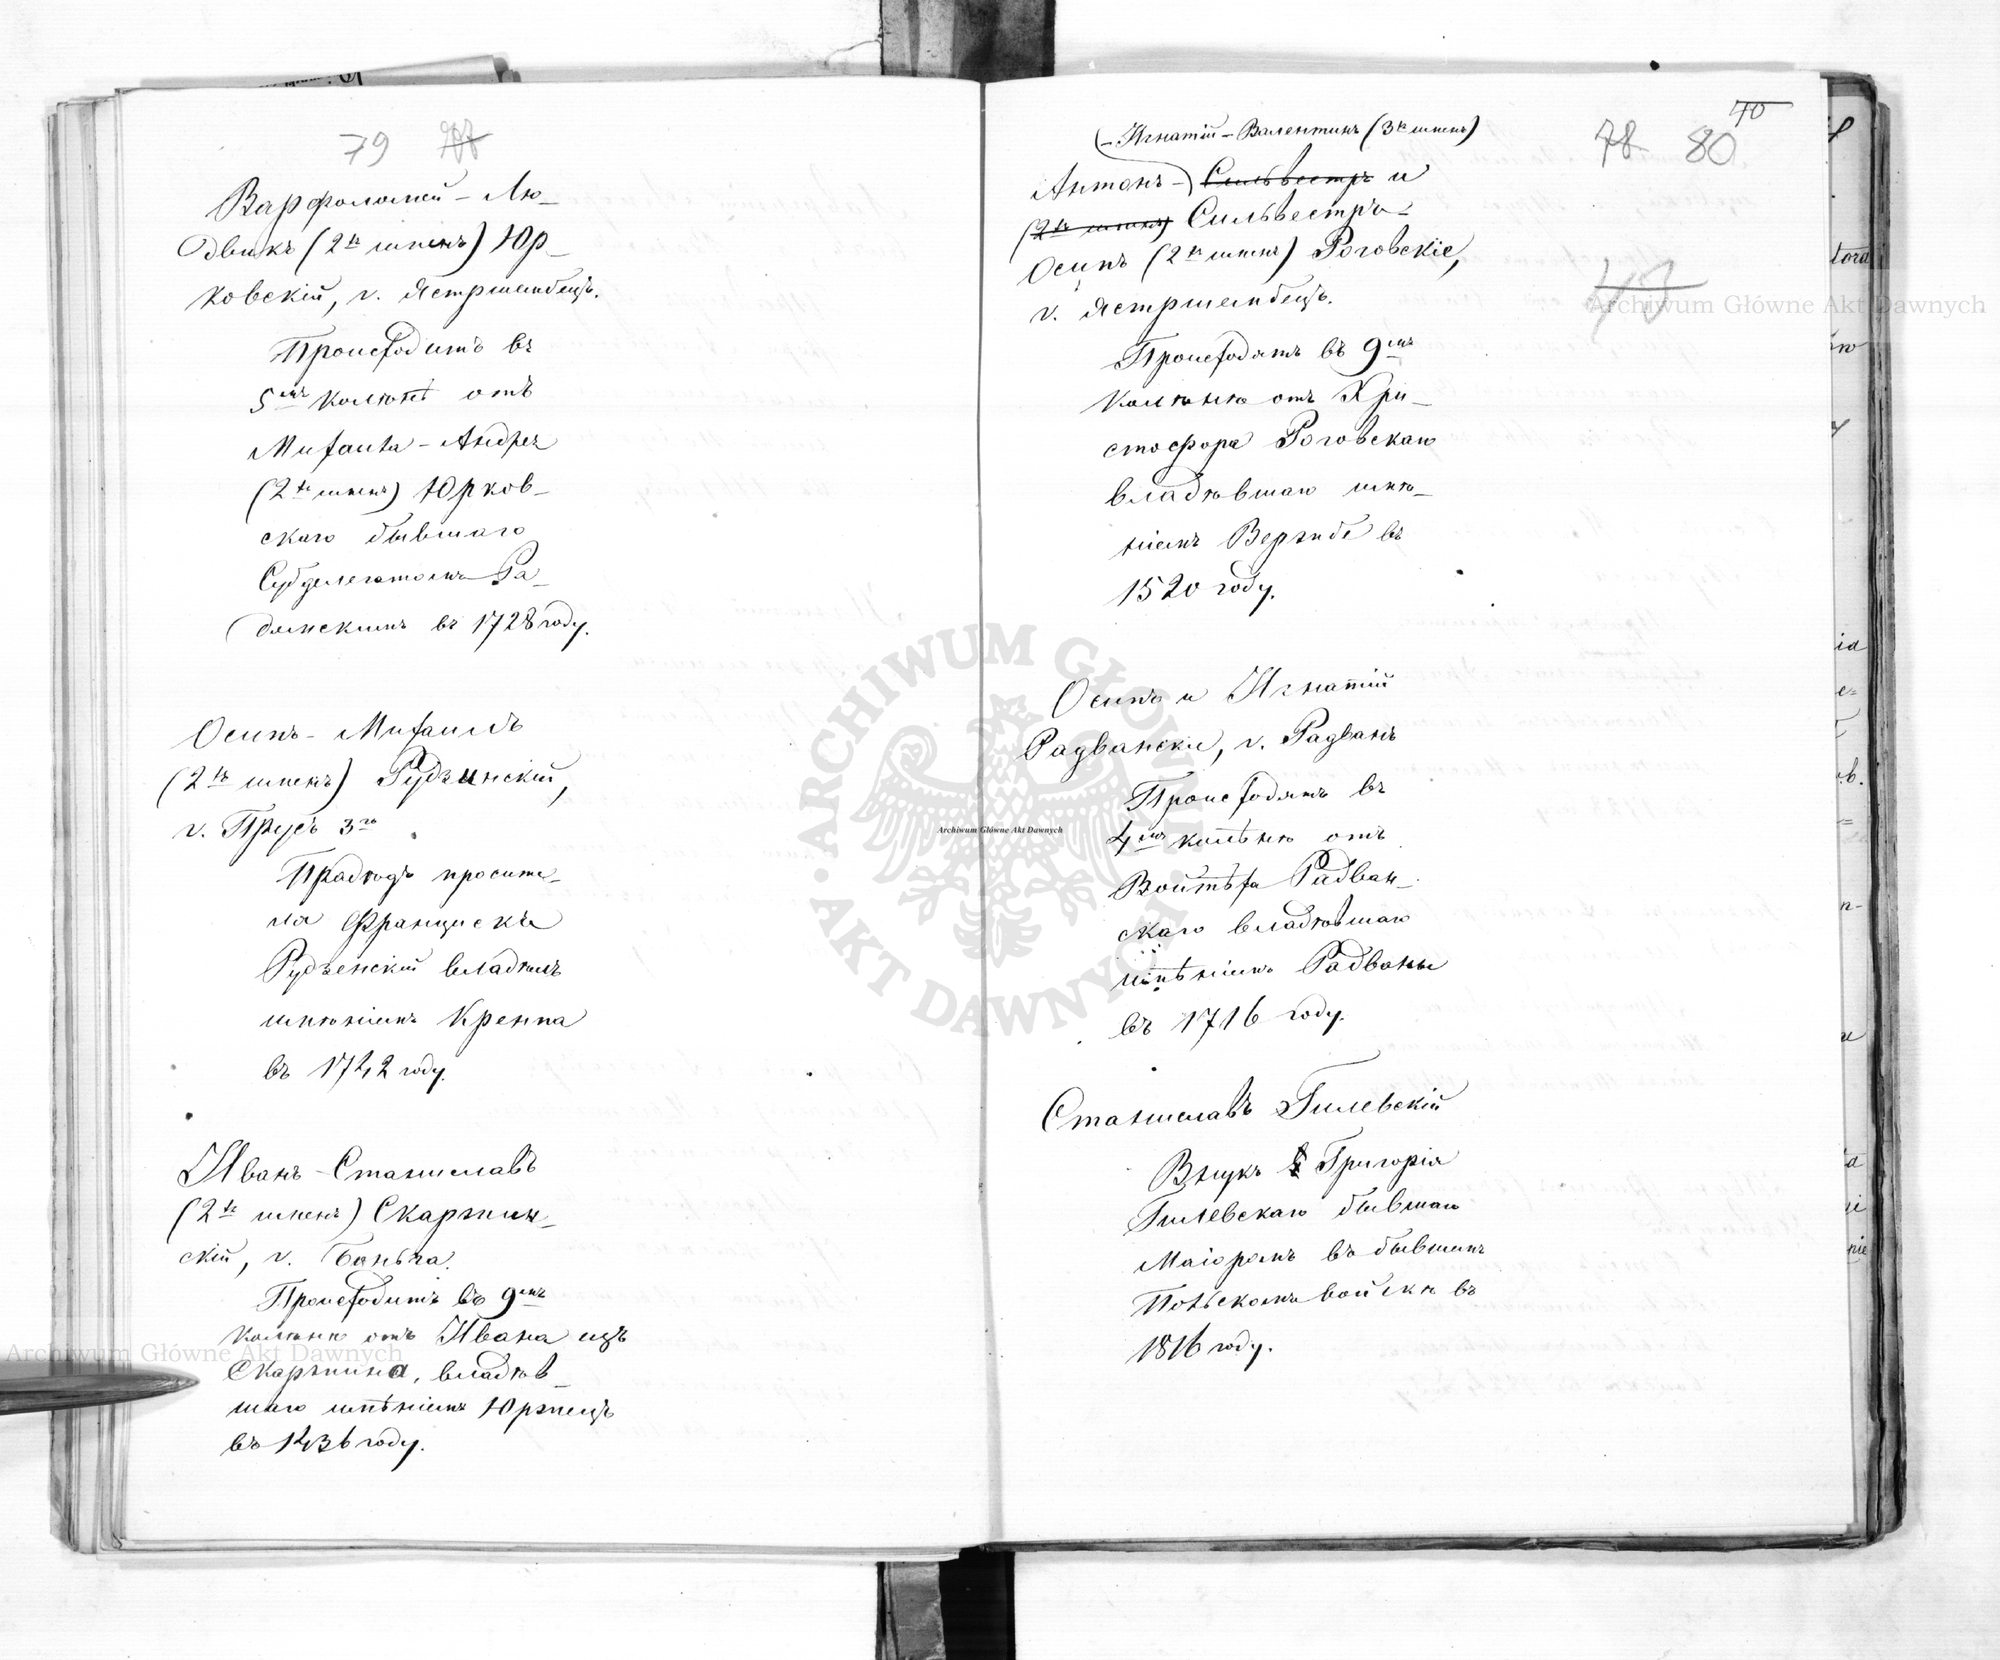 79
Варфоломей-Лю-
двикъ (2хъ именъ) Юр-
ковскій, г. Ястршембецъ.
Происходитъ въ
5мъ колѣнѣ отъ
Михаила-Андрея
(2хъ именъ) Юрков-
скаго бывшаго
Субделегатомъ Ра-
домскимъ въ 1728 году.
Осипъ-Михаилъ
(2хъ именъ) Рудзинскій,
г. Прусъ 3го
Прадѣдъ просите-
ля Францискъ
Рудзенскій владѣлъ
имѣніемъ Кремпа
въ 1742 году.
Иванъ-Станиславъ
(2хъ именъ) Скаржин-
скій, г. Боньча.
Происходитъ въ 9мъ
колѣнѣ отъ Ивана изъ
Скаржина, владѣв-
шаго имѣніемъ Юржецъ
въ 1436 году.
70
78 80
-Игнатій-Валентинъ (3хъ именъ)
Антонъ-Сильвестръ и
(2хъ именъ) Сильвестръ-
Осипъ (2хъ именъ) Роговскіе,
г. Ястршембецъ.
Происходятъ въ 9мъ
колѣнѣ отъ Хри-
стофора Роговскаго
владѣвшаго имѣ-
ніемъ Вержбе въ
1520 году.
Осипъ и Игнатій
Радванскіе, г. Радванъ
Происходятъ въ
4мъ колѣнѣ отъ
Войтѣха Радван-
скаго владѣвшаго
имѣніемъ Радваны
въ 1716 году.
Станиславъ Гилевскій
Внукъ Григорія
Гилевскаго бывшаго
Маіоромъ въ бывшемъ
Польскомъ войскѣ въ
1816 году.
Archiwum Główne Akt Dawnych
Archiwum Główne Akt Dawnych
Archiwum Główne Akt Dawnych
ARCHIWUM GŁÓWNE
AKT DAWNYCH